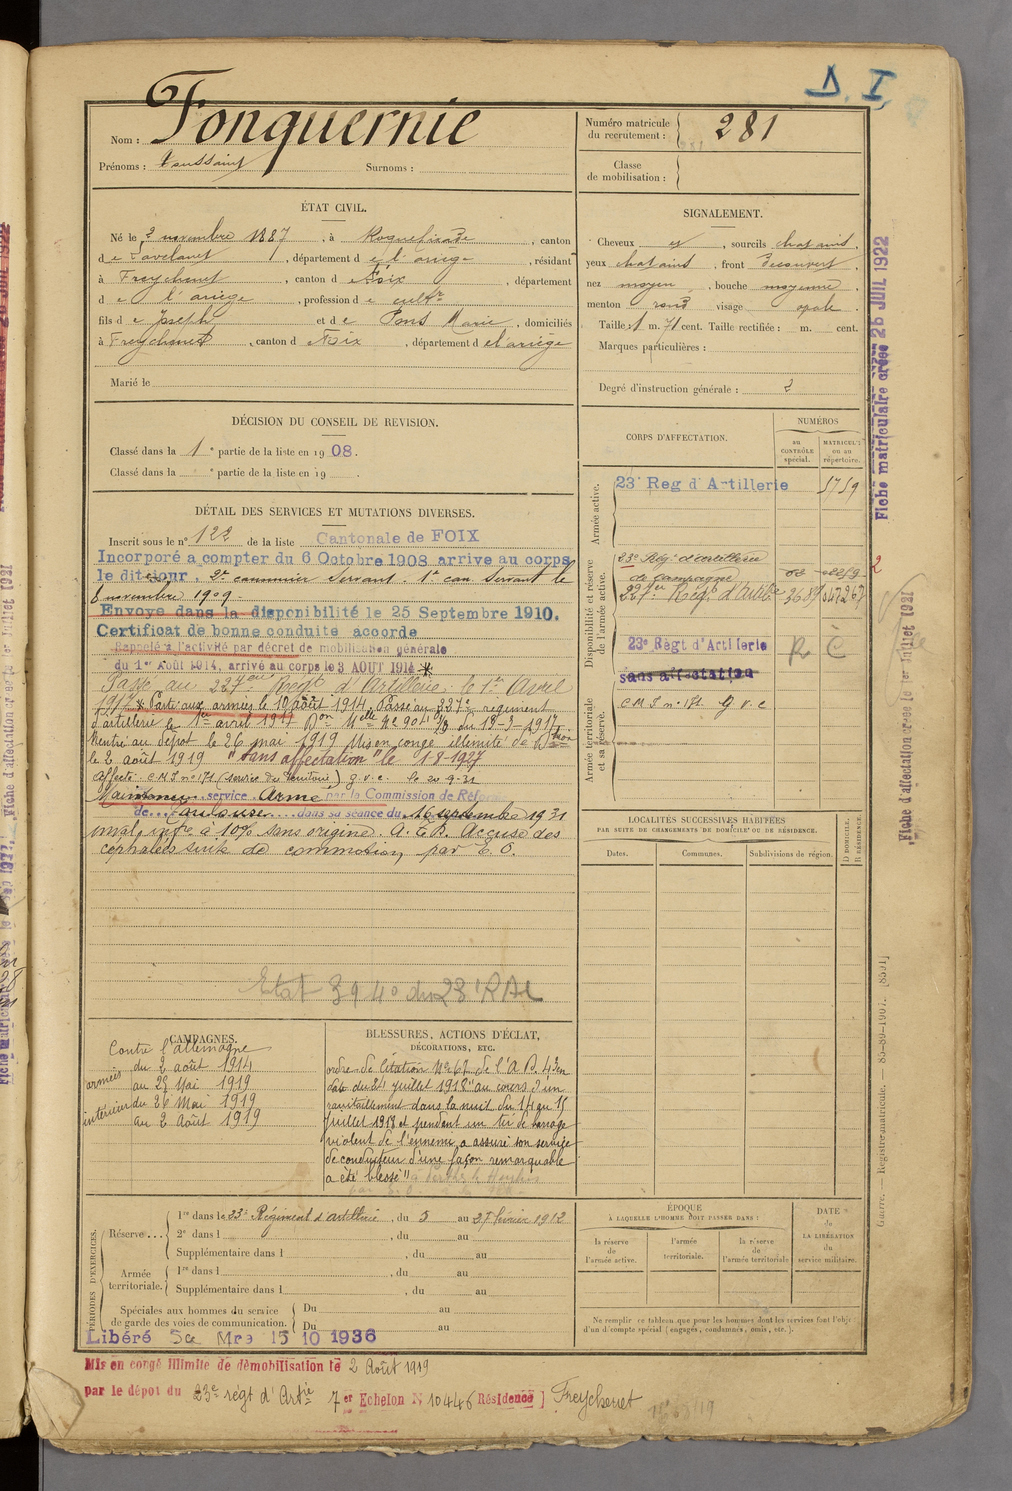 D. I.
Nom : Fonquernie
Prénoms : Toussaint Surnoms :
Numéro matricule du recrutement : 281
Classe de mobilisation :
ÉTAT CIVIL.
Né le 2 novembre 1887, à Roquefixade, canton
de Lavelanet, département de l'ariège, résidant
à Freychenet, canton de Foix, département
de l'ariège, profession de cultr
fils de Joseph et de Pons Marie, domiciliés
à Freychenet, canton d Foix, département de l'ariège
Marié le
SIGNALEMENT.
Cheveux et, sourcils chatains.
yeux chatains, front découvert,
nez moyen, bouche moyenne,
menton rond visage ovale.
Taille 1 m. 71 cent. Taille rectifiée : m. cent.
Marques particulières :
Degré d'instruction générale : 2
DÉCISION DU CONSEIL DE REVISION.
Classé dans la 1e partie de la liste en 1908.
Classé dans la e partie de la liste en 19 .
DÉTAIL DES SERVICES ET MUTATIONS DIVERSES.
Inscrit sous le n° 122 de la liste Cantonale de FOIX
Incorporé a compter du 6 Octobre 1908 arrive au corps
le dit jour. 2e cannonier Servant. 1er can. Servant le
8 novembre 1909.
Envoyé dans la disponibilité le 25 Septembre 1910.
Certificat de bonne conduite accorde
Rappelé à l'activité par décret de mobilisation générale
du 1er Août 1914, arrivé au corps le 3 AOUT 1914 *
Passé au 227eme Regt d'Artillerie le 1er Avril
1917 * Parti aux armées le 10 août 1914. Passé au 227e regiment
d'artillerie le 1er avril 1917 Don Melle No 9041 du 18-3-1917
Rentré au dépot le 26 mai 1919 Mis en congé illimité de Dtion
le 2 août 1919 "Sans affectation" le 1-8-1927
affecté C.M.I. n° 171 (service du territoire) g.v.c. le 20-9-31
Maintenu service Armé par la Commission de Réforme
de Toulouse dans sa séance du 16 septembre 1931
inval. infre à 10% sans origine. A.E.B. Accuse des
céphalées suite de commotion par E.O.
Etat 3940 du 23 RAC
CORPS D'AFFECTATION.
NUMÉROS
au CONTRÔLE spécial.
MATRICULE ou au répertoire.
Armée active.
23e Reg d'Artillerie 5759
Disponibilité et réserve de l'armée active.
23e Régt d'artillerie
de Campagne
227e Régt d'Artillie 3689
23e Règt d'Artillerie R C
sans affectation
Armée territoriale et sa réserve.
C.M.I. n° 171. G.V.C
LOCALITÉS SUCCESSIVES HABITÉES
PAR SUITE DE CHANGEMENTS DE DOMICILE OU DE RÉSIDENCE.
Dates. Communes. Subdivisions de région. D DOMICILE. R RÉSIDENCE.
CAMPAGNES.
Contre l'allemagne
armées du 2 août 1914
au 25 Mai 1919
intérieur du 26 Mai 1919
au 2 Août 1919
BLESSURES, ACTIONS D'ÉCLAT,
DÉCORATIONS, ETC.
ordre de citation No 67 de l'A.D. 43 en
date du 24 juillet 1918 "au cours d'un
ravitaillement dans la nuit du 14 au 15
juillet 1918 et pendant un tir de barrage
violent de l'ennemi a assuré son service
de conducteur d'une façon remarquable
a été blessé"
PÉRIODES D'EXERCICES.
Réserve...
1re dans le 23e Régiment d'artillerie, du 5 au 27 février 1912
2e dans l , du au
Supplémentaire dans l , du au
Armée territoriale.
1re dans l , du au
Supplémentaire dans l , du au
Spéciales aux hommes du service de garde des voies de communication.
Du au
Du au
Libéré Sce Mre 15 10 1936
ÉPOQUE
À LAQUELLE L'HOMME DOIT PASSER DANS :
la réserve de l'armée active.
l'armée territoriale.
la réserve de l'armée territoriale
DATE de LA LIBÉRATION du service militaire.
Ne remplir ce tableau que pour les hommes dont les services font l'objet
d'un décompte spécial (engagés, condamnés, omis, etc.).
Mis en congé illimité de démobilisation le 2 Août 1919
par le dépot du 23e régt d'Artie 7er Echelon N 10446 Résidence ] Freychenet
Fiche matriculaire créée 26 JUIL 1922
Fiche d'affectation créée le 1er Juillet 1921
Guerre. — Registre matricule.